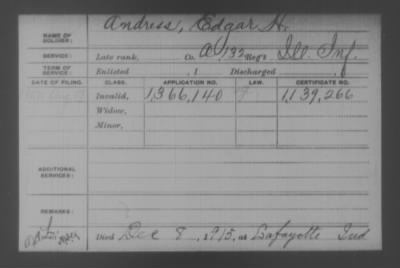 NAME OF SOLDIER: Andress, Edgar H.
SERVICE: Late rank, Co. A, 133 Reg't Ill Inf.
TERM OF SERVICE: Enlisted , 1 Discharged
DATE OF FILING. CLASS. APPLICATION NO. LAW. CERTIFICATE NO.
Invalid, 1,366,140 1,139,266
Widow,
Minor,
ADDITIONAL SERVICES:
REMARKS:
Died Dec 8, 1915, at Lafayette Ind